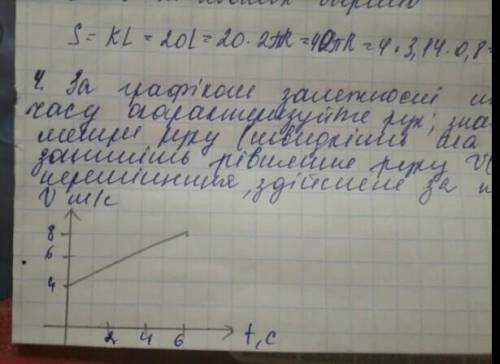 S = KL = 20L = 20 · 2πR = 40πR = 4 · 3,14 · 0,8 =
4. За графіком залежності
часу охарактеризуйте рух; зна
руху (швидкість
запишіть рівняння руху V(
переміщення, здійснене за
V м/с
8
6
4
2 4 6 t, c